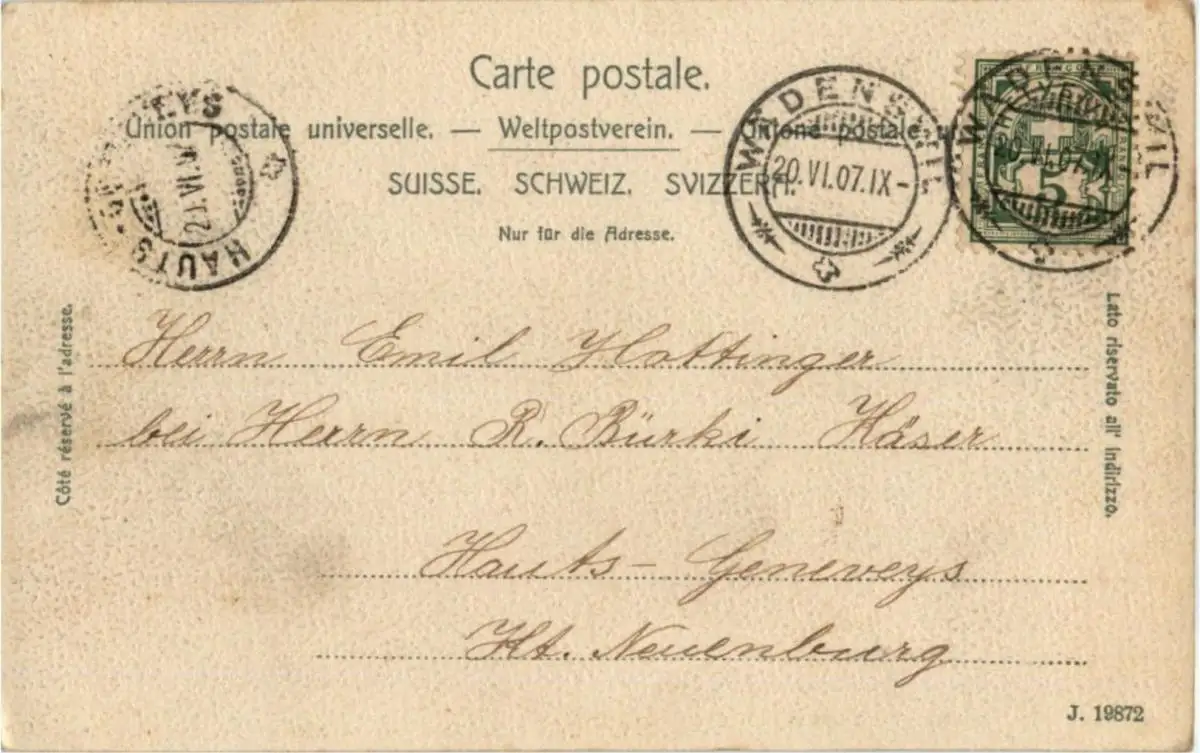 Carte postale.
Union postale universelle. — Weltpostverein. — Unione postale
SUISSE. SCHWEIZ. SVIZZERA.
Nur für die Adresse.
WÄDENSWIL
20.VI.07.IX-
WÄDENSWIL
20.VI.07.IX
5
EYS
HAUTS
Côté réservé à l'adresse.
Lato riservato all' indirizzo.
Herrn Emil Hottinger
bei Herrn R. Bürki Käser
Hauts-Geneveys
Kt. Neuenburg
J. 19872